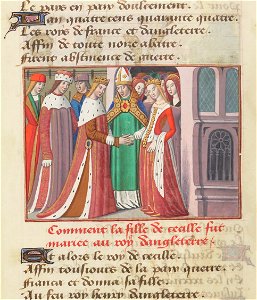 Le pays en paix povoir
En quatre cens quarante quatre
Les roys de france et dangleterre
Affin de toute noise abatre
Firent abstinence de guerre
Comment la fille de cecille fut
mariee au roy dangleterre
Et alors le roy de cecille
Affin tousiours de la paix querre
Fianca et donna sa fille
Au feu roy henry dangleterre